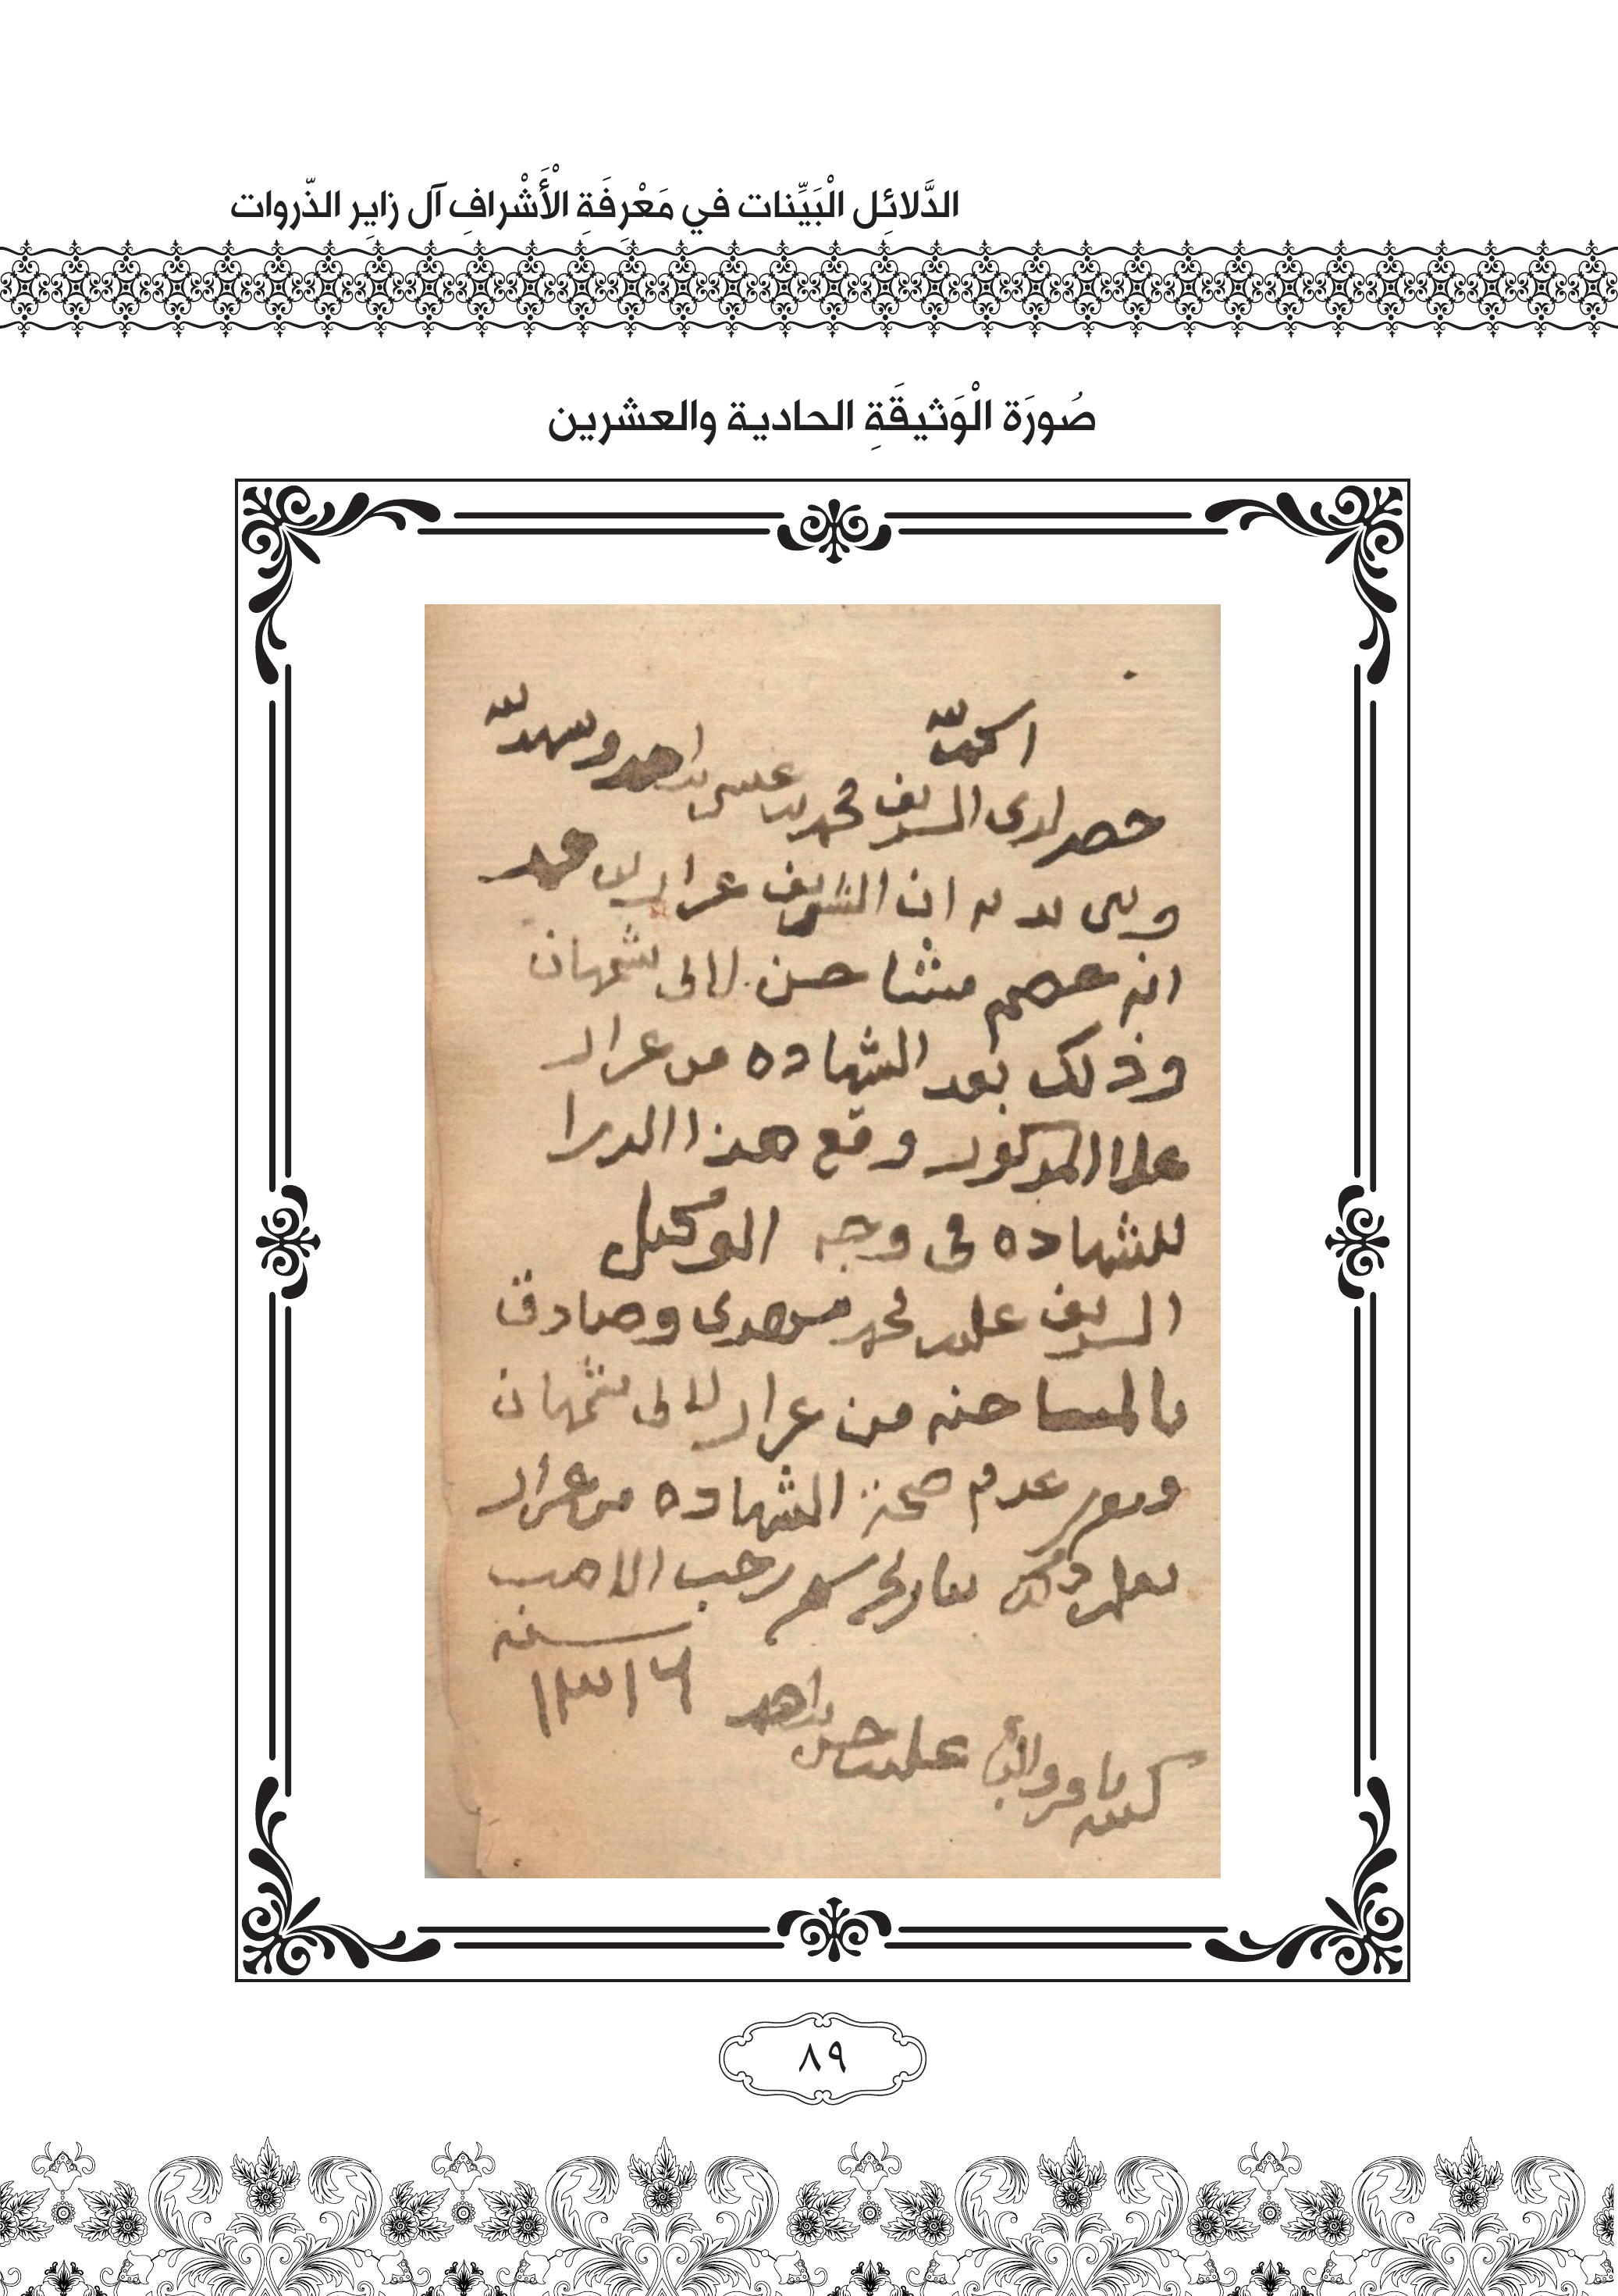 الدَّلائِل الْبَيِّنات في مَعْرِفَةِ الْأَشْرافِ آل زايِر الذّروات
صُورَة الْوَثيقَةِ الحادية والعشرين
الحمد لله
حضر لدى الشريف محمد بن عيسى بن احمد وشهد لله
وبين يديه ان الشريف عرار بن محمد
انه خصم مشاحن لالى شمهان
وذلك بعد الشهاده من عرار
علا المذكور وقع هذا
للشهاده فى وجه الوكيل
الشريف على بن محمد مهدى وصادق
بالمشاحنه من عرار لالى شمهان
عدم صحة الشهاده من عرار
ذلك بتاريخ شهر رجب الاصب
سنه
١٣١٦
كتبه علي بن حسن بن احمد
٨٩